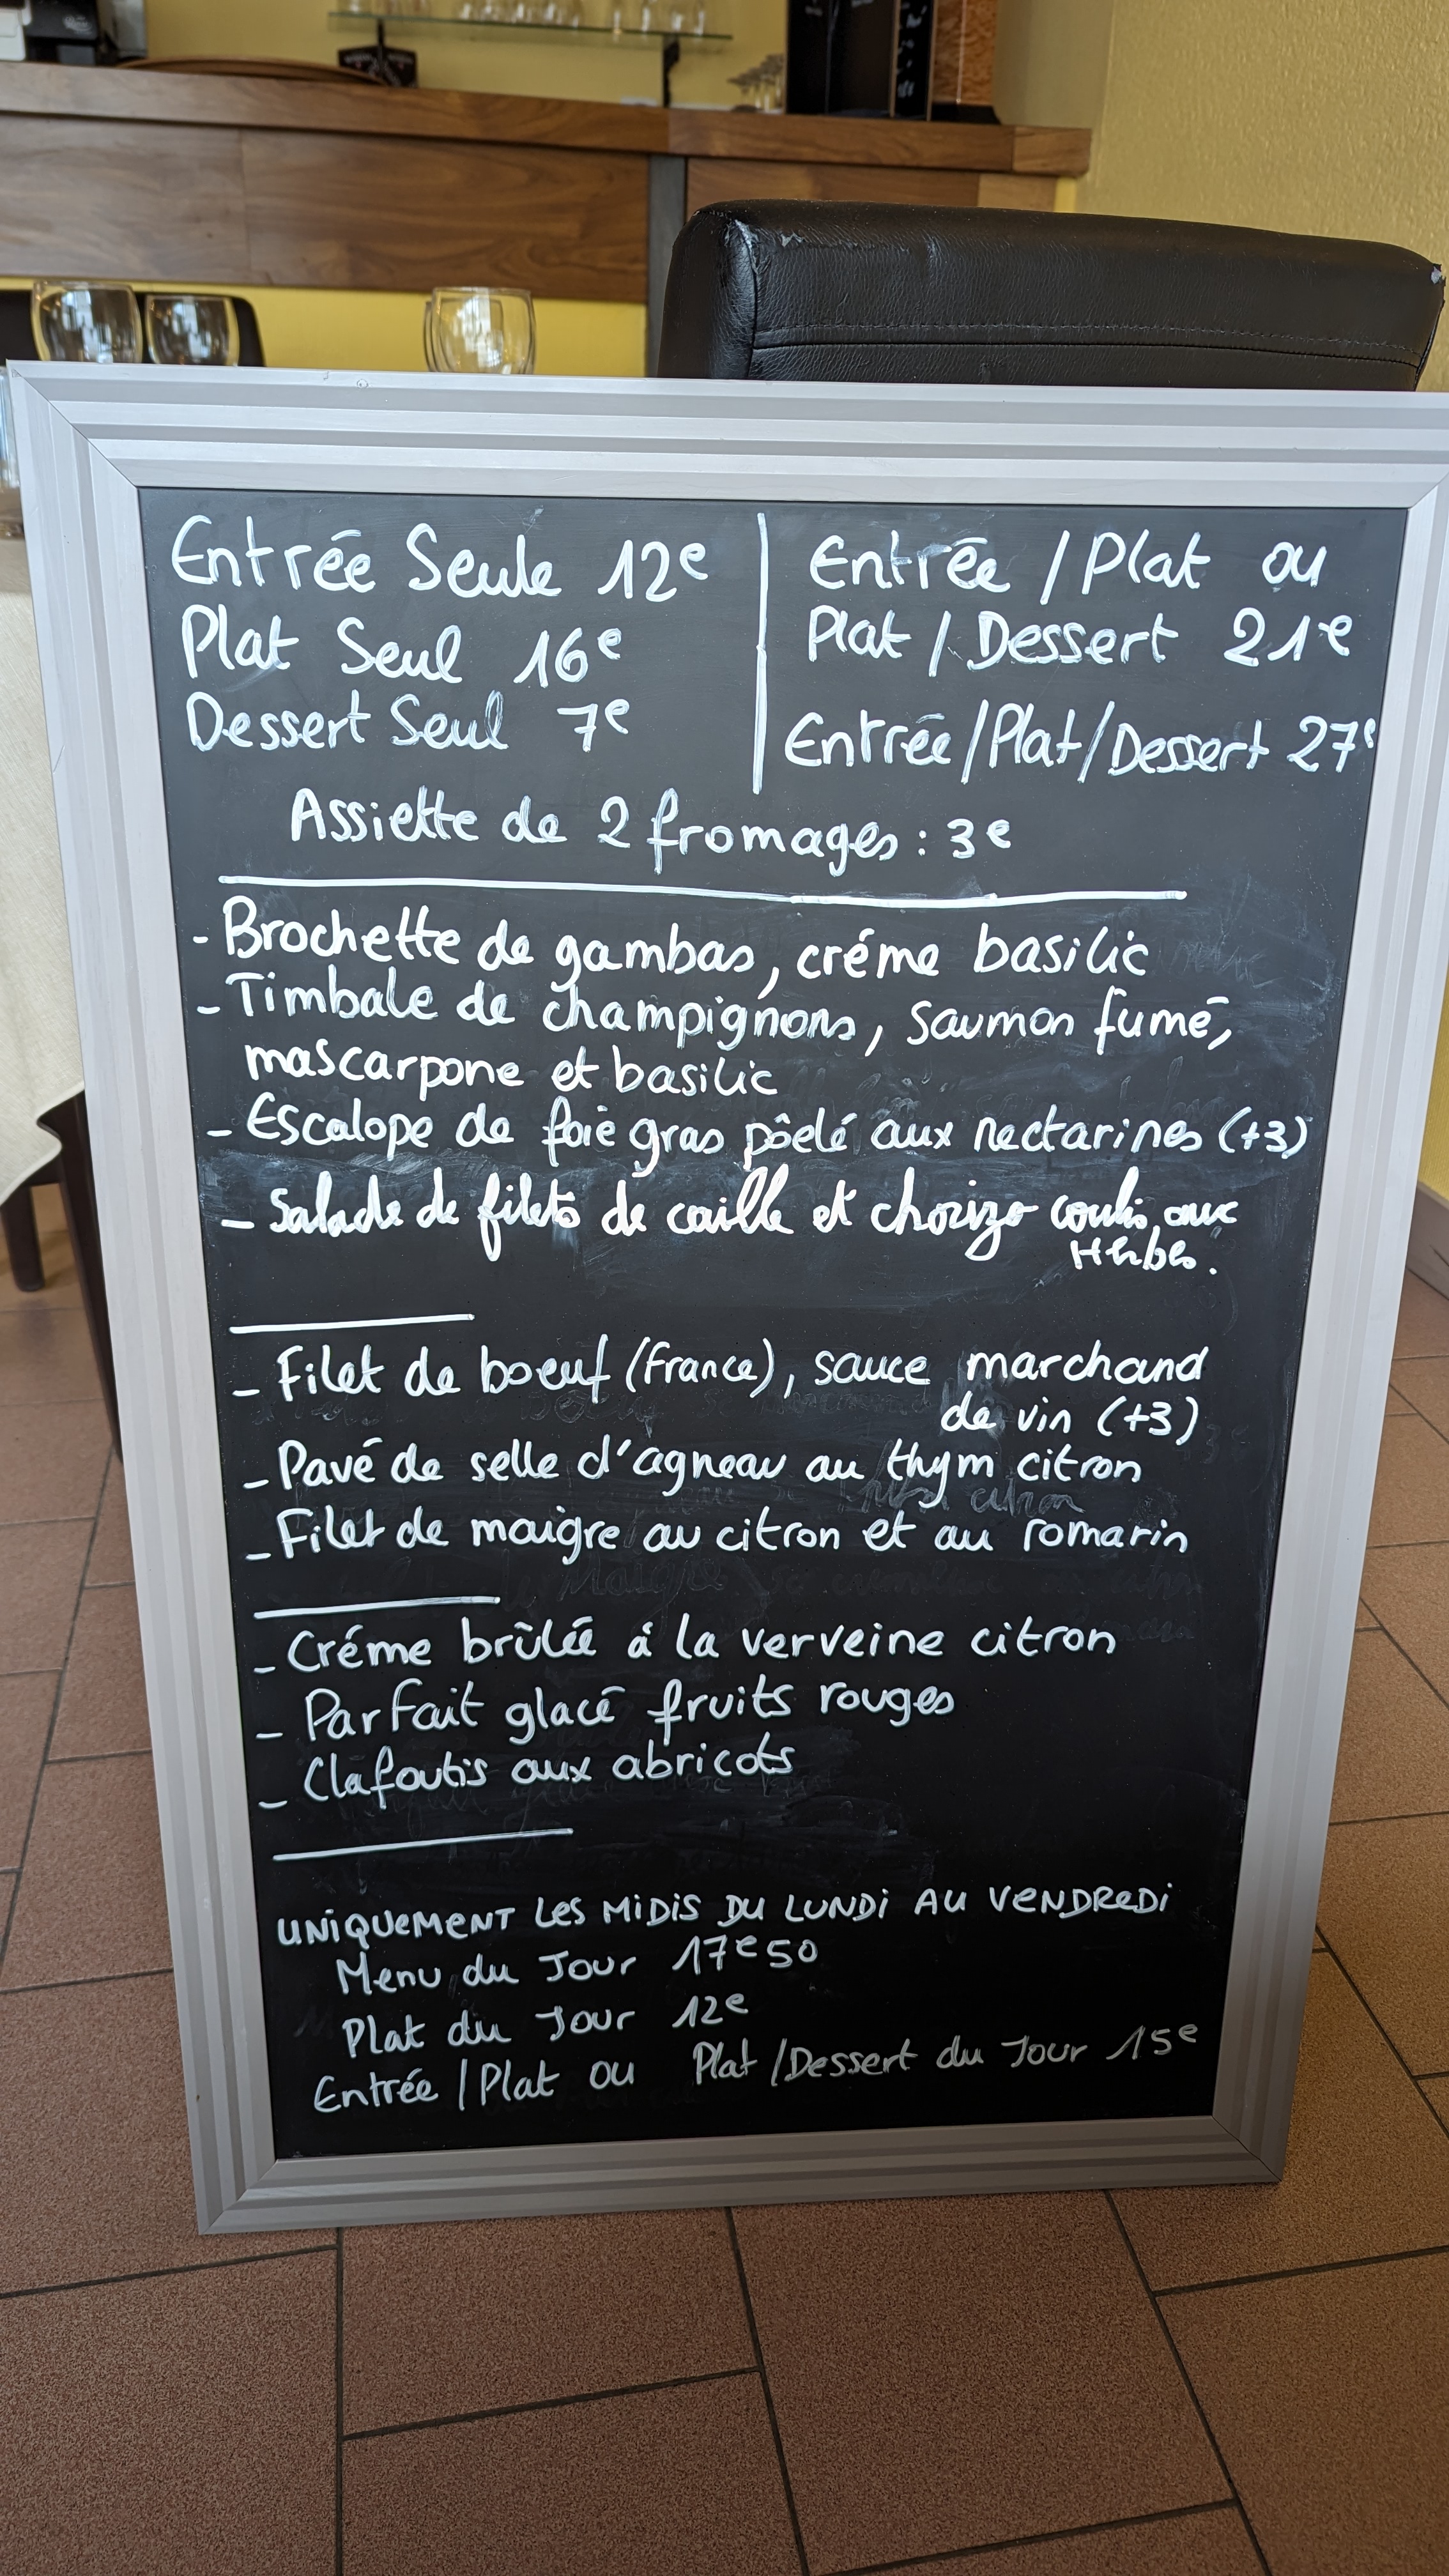 Entrée Seule 12e
Plat Seul 16e
Dessert Seul 7e
Entrée / Plat ou
Plat / Dessert 21e
Entrée/Plat/Dessert 27e
Assiette de 2 fromages : 3e
- Brochette de gambas, créme basilic
- Timbale de champignons, saumon fumé,
mascarpone et basilic
- Escalope de foie gras pôelé aux nectarines (+3)
- Salade de filets de caille et chorizo coulis aux
Herbes.
- Filet de boeuf (France), sauce marchand
de vin (+3)
- Pavé de selle d'agneau au thym citron
- Filet de maigre au citron et au romarin
- Créme brûlée á la verveine citron
- Parfait glacé fruits rouges
- Clafoutis aux abricots
UNIQUEMENT LES MIDIS DU LUNDI AU VENDREDI
Menu du Jour 17e50
Plat du Jour 12e
Entrée / Plat ou Plat / Dessert du Jour 15e